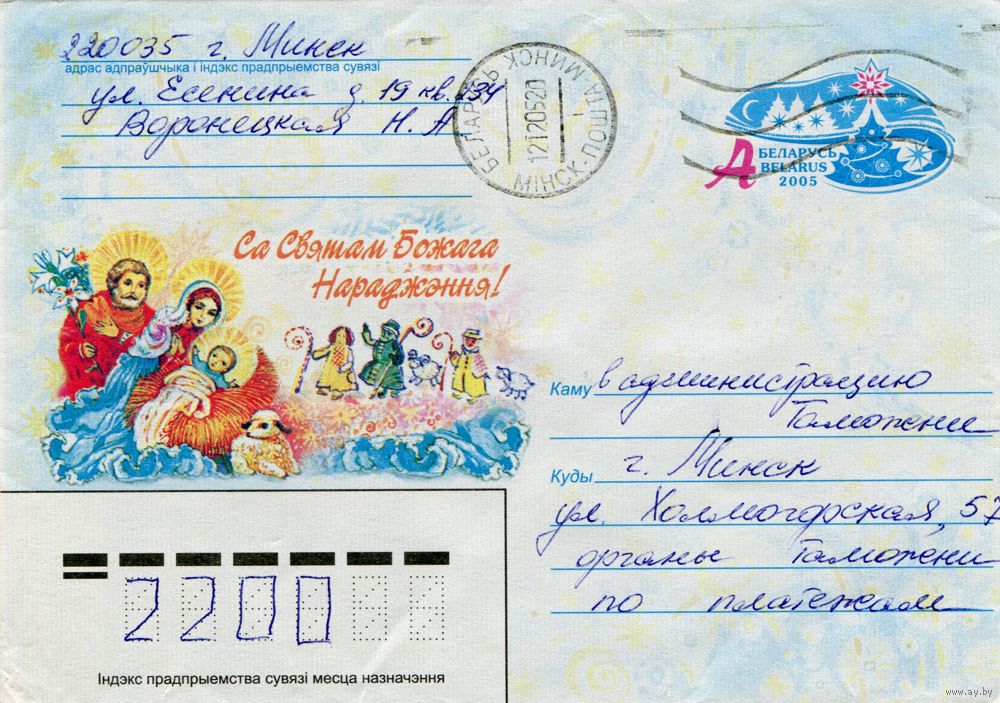 220035 г. Минск
адрас адпраўшчыка і індэкс прадпрыемства сувязі
ул. Есенина д. 19 кв. 134
Воронецкая Н. А
БЕЛАРУСЬ МІНСК
МІНСК-ПОШТА-1
А БЕЛАРУСЬ
BELARUS
2005
Са Святам Божага
Нараджэння!
Каму в администрацию
Таможени
Куды г. Минск
ул. Холмогорская, 57
органы Таможени
по платежам
2200
Індэкс прадпрыемства сувязі месца назначэння
www.ay.by